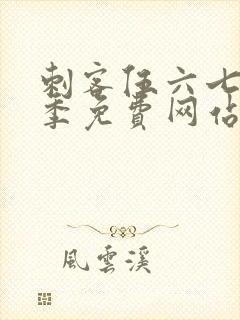 刺客伍六七
季免費网佔
風雲溪